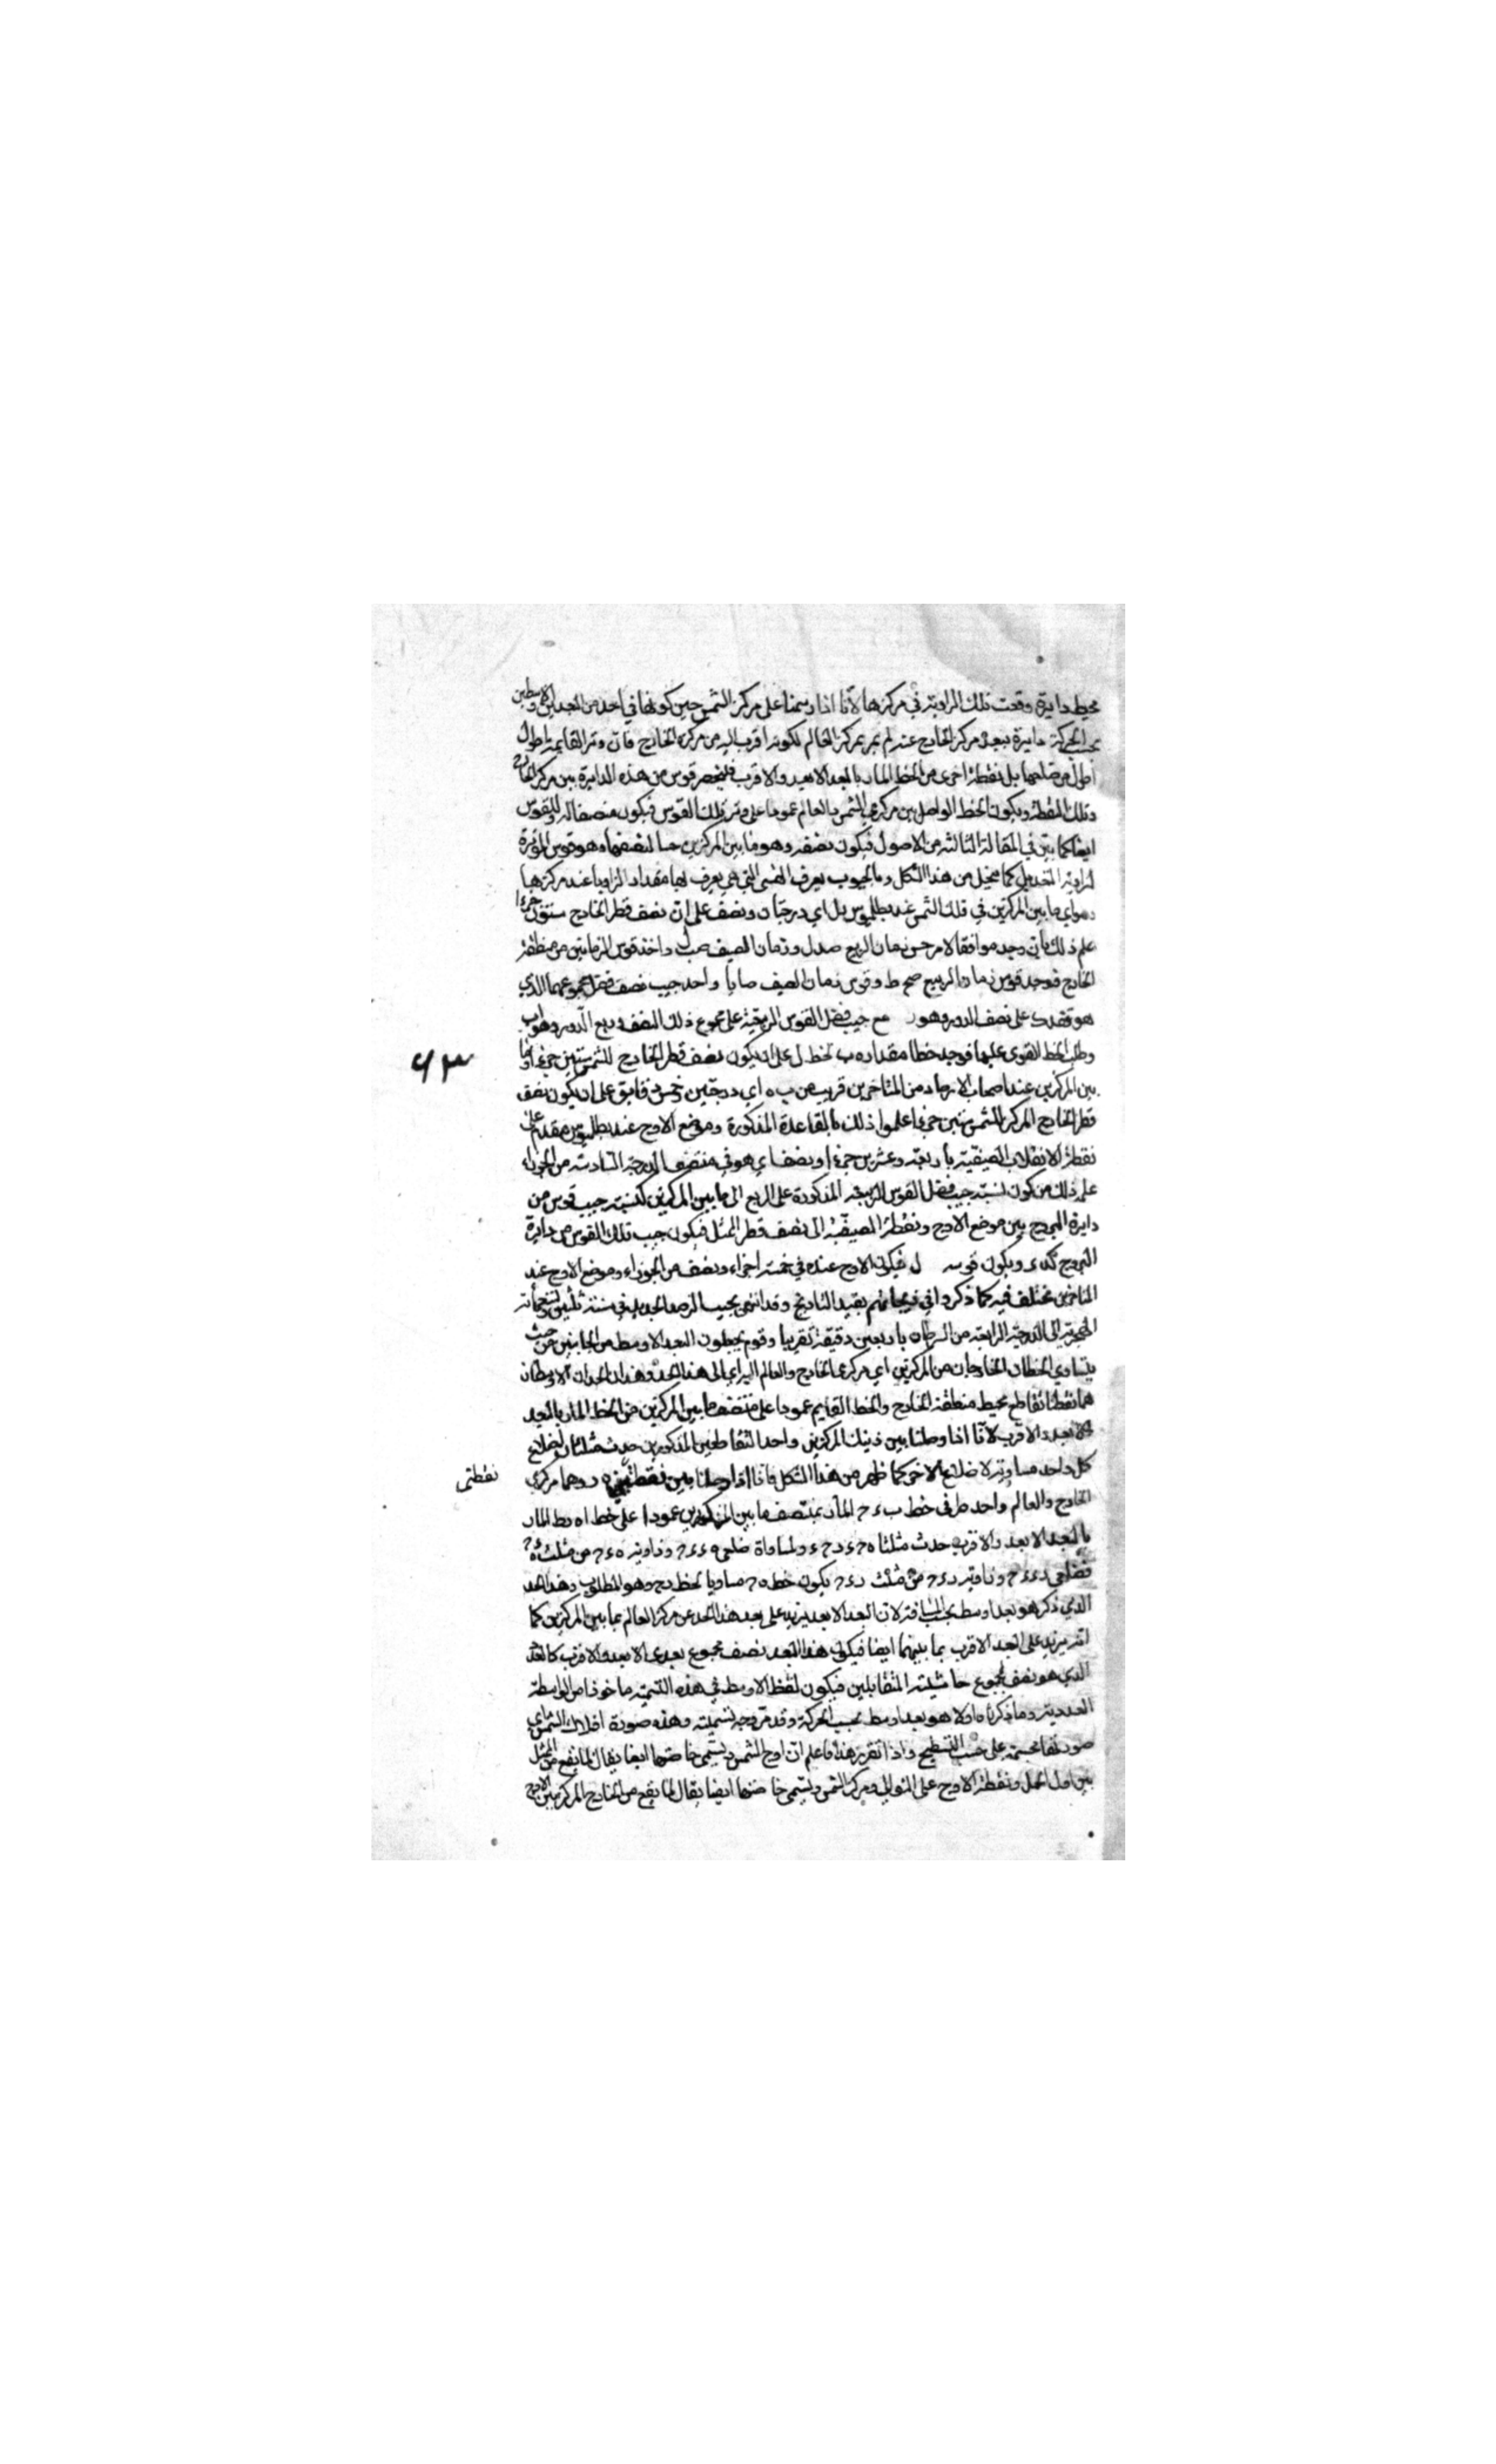 محيط دايرة وقعت تلك الزاوية في مركزها لانا اذا رسمنا على مركز الشمس حين كونها في احد من البعدين الاوسطين
بحسب الحركة دايرة ببعد مركز الخارج عنه لم تمر بمركز العالم لكونه اقرب اليه من مركز الخارج فان وتر القايمة اطول
اطول من ضلعها بل بنقطة اخرى من الخط المار بالبعد الابعد والاقرب فينحصر قوس من هذه الدايرة بين مركز الخارج
وتلك النقطة ويكون الخط الواصل بين مركزي الشمس والعالم عمودا على وتر تلك القوس فيكون منصفا له وللقوس
ايضا كما بين في المقالة الثالثة من الاصول فيكون نصفه وهو ما بين المركزين جيبا لنصفها وهو قوس الموترة
لزاوية التعديل كما يتخيل من هذا الشكل وبالجيوب يعرف القسى التي هي يعرف بها مقدار الزوايا عند مركزها
وهو اي ما بين المركزين في فلك الشمس عند بطلميوس ب ل اي درجتان ونصف على ان نصف قطر الخارج ستون جزءا
علم ذلك بان وجد موافقا لابرخس زمان الربيع صد ل وزمان الصيف صب ل واخذ قوس الزمانين من منطقة
الخارج فوجد قوس زمان الربيع صح ط وقوس زمان الصيف صا يا واحد جيب نصف فضل مجموعهما الذي
هو قفد ك على نصف الدور وهو مع جيب فضل القوس الربيعية على مجموع ذلك النصف وربع الدور وهو
وطلب الخط القوى عليهما فوجد خطا مقداره ب لخط ل على ان يكون نصف قطر الخارج للشمس ستين جزءا وما
بين المركزين عند اصحاب الارصاد من المتاخرين قريب من ب ه اي درجتين وخمس دقايق على ان يكون نصف
قطر الخارج المركز للشمس ستين جزءا علموا ذلك بالقاعدة المذكورة وموضع الاوج عند بطلميوس مقدم على
نقطة الانقلاب الصيفية باربعة وعشرين جزءا ونصف اي هو في منتصف الدرجة السادسة من الجوزاء
علم ذلك من كون نسبة جيب فضل القوس الربيعية المذكورة على الربع الى ما بين المركزين كنسبة جيب قوس من
دايرة البروج بين موضع الاوج ونقطة الصيفية الى نصف قطر الممثل فيكون جيب تلك القوس من دايرة
البروج كد ء ويكون قوسه ل فيكون الاوج عنده في خمسة اجزاء ونصف من الجوزاء وموضع الاوج عند
المتاخرين مختلف فيه كما ذكروا في زيجاتهم بقيد التاريخ وقد انتهى بحسب الرصد الجديد في سنة ثلثين وتسعمائة
الهجرية الى الدرجة الرابعة من السرطان باربعين دقيقة تقريبا وقوم يجعلون البعد الاوسط من الجانبين من حيث
يتساوى الخطان الخارجان من المركزين اي مركزي الخارج والعالم اليه اي الى هذا البعد وهذان البعدان الاوسطان
هما نقطتا تقاطع محيط منطقة الخارج والخط القايم عمودا على منتصف ما بين المركزين من الخط المار بالبعد
الابعد والاقرب لانا اذا وصلنا بين ذينك المركزين واحد التقاطعين المذكورين حدث مثلثان اضلاع
كل واحد مساوية لاضلاع الاخر كما ظهر من هذا الشكل فانا اذا وصلنا بين نقطتي ه د وهما مركزي
نقطتى
الخارج والعالم واحد طرفى خط ب ء ح المار بمنتصف ما بين المركزين عمودا على خط ا ه د ط المار
بالبعد الابعد والاقرب حدث مثلثا ه ح ء د ح ء ولمساواة ضلعي ه ء ء ح وزاوية ه ء ح من مثلث ه ء ح
فضلعي د ء ء ح وزاوية د ء ح من مثلث د ء ح يكون خط ه ح مساويا لخط د ح وهو المطلوب وهذا البعد
الذي ذكر هو بعد اوسط بحسب المسافة لان البعد الابعد يزيد على بعد هذا البعد عن مركز العالم بما بين المركزين كما
انه يزيد على البعد الاقرب بما بينهما ايضا فيكون هذا البعد نصف مجموع بعدى الابعد والاقرب كالعدد
الذي هو نصف مجموع حاشيتيه المتقابلتين فيكون لفظ الاوسط في هذه التسمية ماخوذا من الواسطة
العددية وما ذكرناه اولا هو بعد اوسط بحسب الحركة وقد مر وجه تسميته وهذه صورة افلاك الشمس اي
صورتها مجسمة على حسب التسطيح واذا تقرر هذا فاعلم ان اوج الشمس ويسمى خاصتها ايضا يقال لما يقع من الممثل
بين اول الحمل ونقطة الاوج على التوالي ومركز الشمس ويسمى خاصتها ايضا يقال لما يقع من الخارج المركز بين الاوج
۶۳